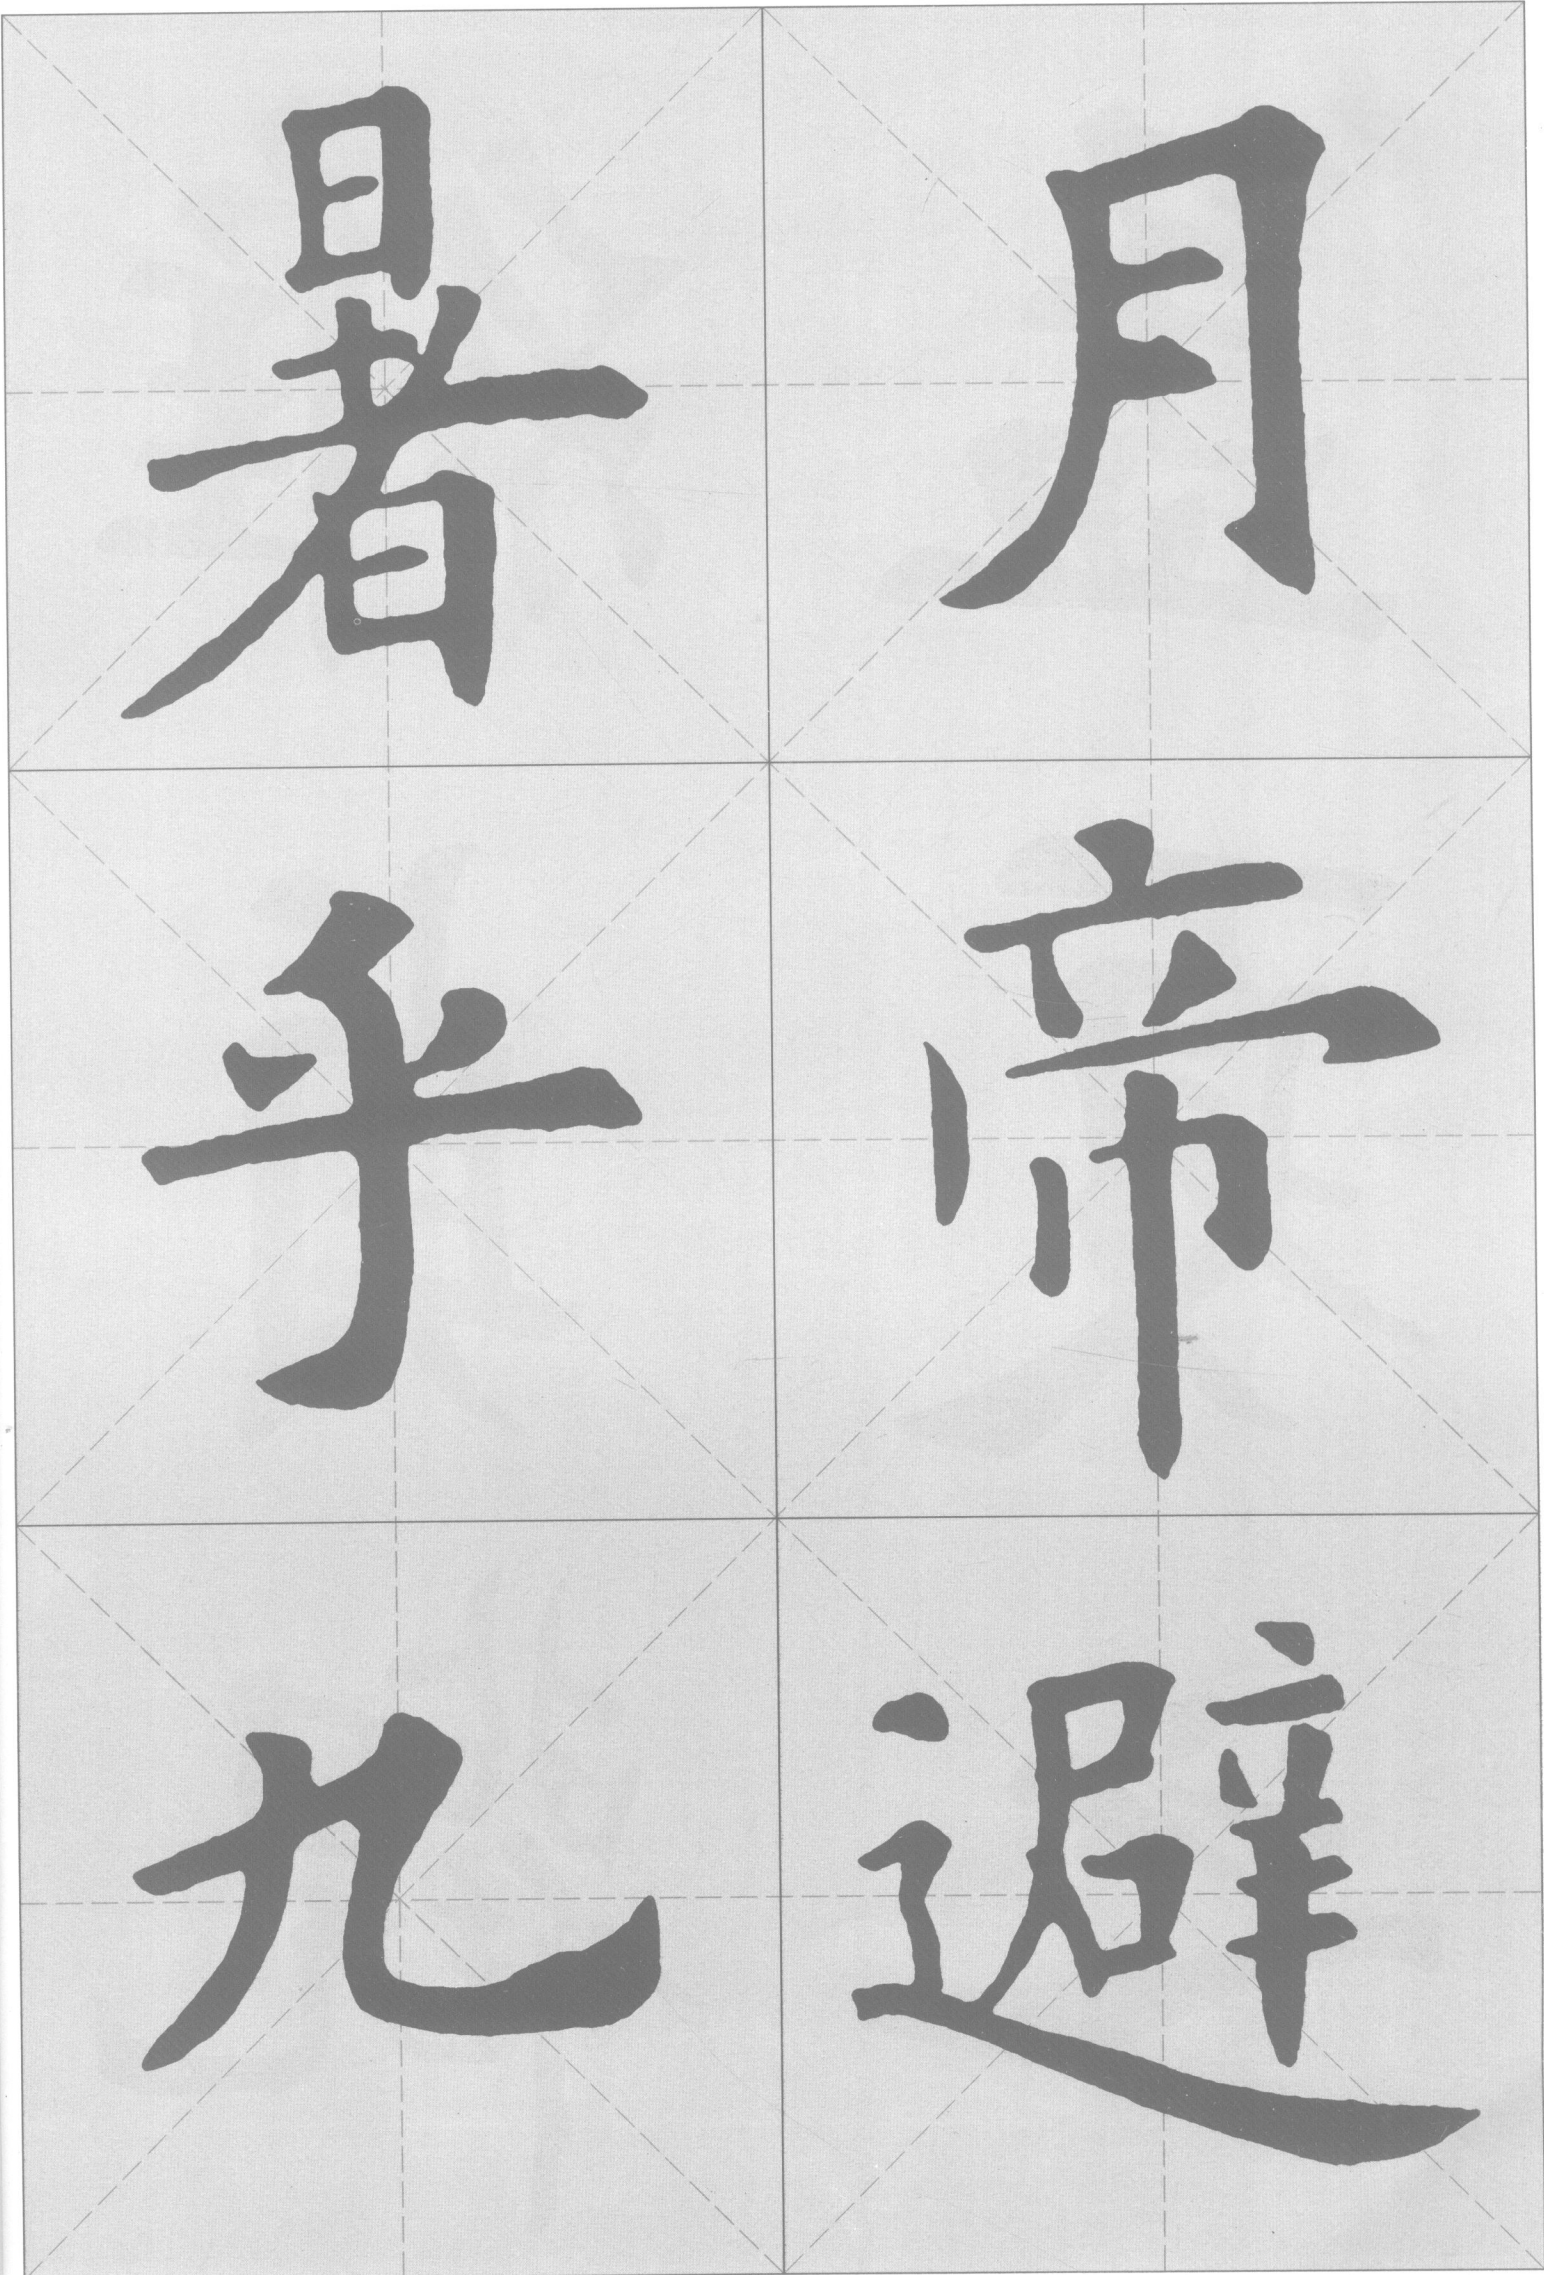 月帝避
暑乎九